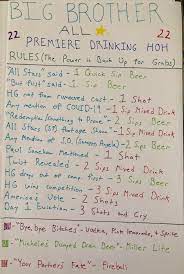 BIG BROTHER
22 ALL ★ 22
PREMIERE DRINKING HOH
RULES (The Power is Back Up for Grabs)
"All Stars" said - 1 Quick Sip Beer
"But First" said - 1 Sip Beer
HG not from rumored cast - 1 Shot
Any mention of COVID-19 - 1 Sip Mixed Drink
"Redemption/Something to Prove" - 2 Sips Beer
All Stars (S7) Footage Shown - 1 Sip Mixed Drink
Any Mention of - 2 Sips Beer
Paul Mentioned - 1 Shot
Twist Revealed - 2 Sips Mixed Drink
HG drops out of comp first - 3 Sips Beer
HG wins competition - 3 Sips Mixed Drink
America's Vote - 2 Shots
Day 1 Eviction - 3 Shots and Cry
"Bye, bye Bitches" - Vodka, Pink lemonade, & Sprite
"Michelle's Dumped Down Beer" - Miller Lite
"Your Partner's Fate" - Fireball